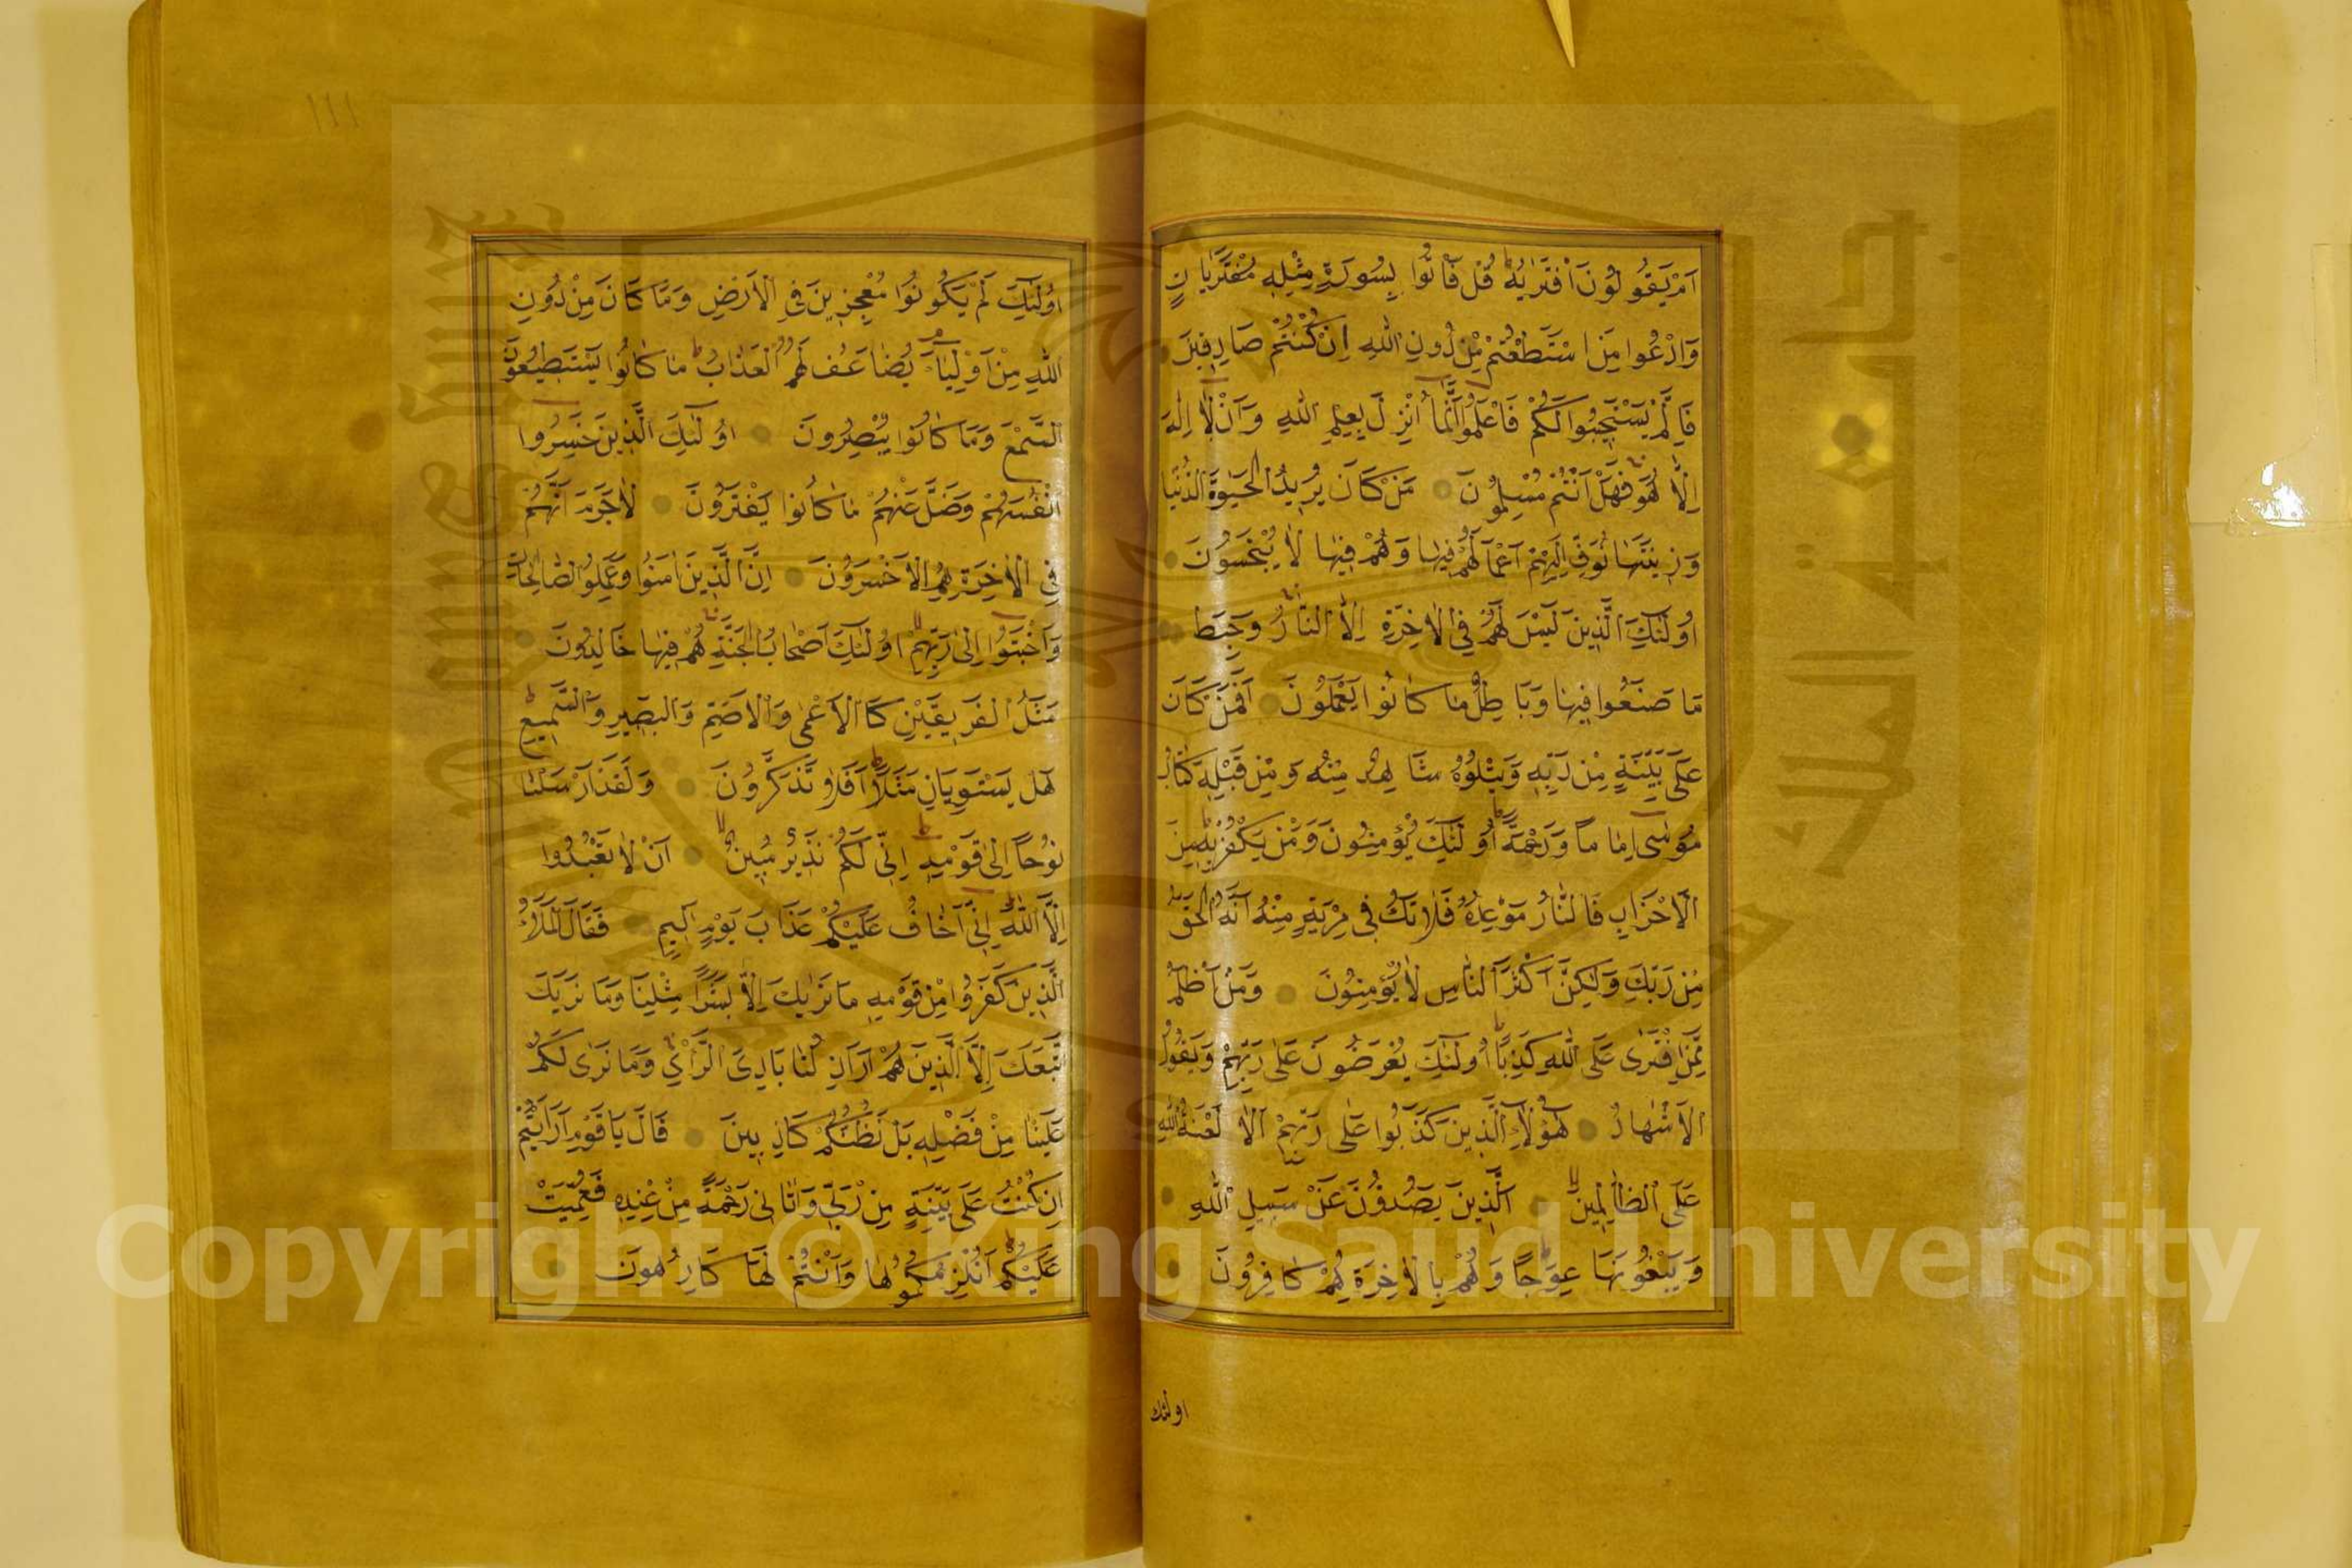 اَمْ يَقُولُونَ افْتَرٰيهُ قُلْ فَأْتُوا بِسُورَةٍ مِثْلِهِ مُفْتَرَيَاتٍ
وَادْعُوا مَنِ اسْتَطَعْتُمْ مِنْ دُونِ اللهِ اِنْ كُنْتُمْ صَادِقِينَ
فَاِلَّمْ يَسْتَجِيبُوا لَكُمْ فَاعْلَمُوا اَنَّمَا اُنْزِلَ بِعِلْمِ اللهِ وَاَنْ لَا اِلٰهَ
اِلَّا هُوَ فَهَلْ اَنْتُمْ مُسْلِمُونَ مَنْ كَانَ يُرِيدُ الْحَيٰوةَ الدُّنْيَا
وَزِينَتَهَا نُوَفِّ اِلَيْهِمْ اَعْمَالَهُمْ فِيهَا وَهُمْ فِيهَا لَا يُبْخَسُونَ
اُولٰئِكَ الَّذِينَ لَيْسَ لَهُمْ فِي الْاٰخِرَةِ اِلَّا النَّارُ وَحَبِطَ
مَا صَنَعُوا فِيهَا وَبَاطِلٌ مَا كَانُوا يَعْمَلُونَ اَفَمَنْ كَانَ
عَلَى بَيِّنَةٍ مِنْ رَبِّهِ وَيَتْلُوهُ شَاهِدٌ مِنْهُ وَمِنْ قَبْلِهِ كِتَابُ
مُوسَى اِمَامًا وَرَحْمَةً اُولٰئِكَ يُؤْمِنُونَ وَمَنْ يَكْفُرْ بِهِ مِنَ
الْاَحْزَابِ فَالنَّارُ مَوْعِدُهُ فَلَا تَكُ فِي مِرْيَةٍ مِنْهُ اَنَّهُ الْحَقُّ
مِنْ رَبِّكَ وَلٰكِنَّ اَكْثَرَ النَّاسِ لَا يُؤْمِنُونَ وَمَنْ اَظْلَمُ
مِمَّنِ افْتَرٰى عَلَى اللهِ كَذِبًا اُولٰئِكَ يُعْرَضُونَ عَلَى رَبِّهِمْ وَيَقُولُ
الْاَشْهَادُ هٰؤُلَاءِ الَّذِينَ كَذَبُوا عَلَى رَبِّهِمْ اَلَا لَعْنَةُ اللهِ
عَلَى الظَّالِمِينَ اَلَّذِينَ يَصُدُّونَ عَنْ سَبِيلِ اللهِ
وَيَبْغُونَهَا عِوَجًا وَهُمْ بِالْاٰخِرَةِ هُمْ كَافِرُونَ
اولئك
١١١
اُولٰئِكَ لَمْ يَكُونُوا مُعْجِزِينَ فِي الْاَرْضِ وَمَا كَانَ مِنْ دُونِ
اللهِ مِنْ اَوْلِيَاءَ يُضَاعَفُ لَهُمُ الْعَذَابُ مَا كَانُوا يَسْتَطِيعُونَ
السَّمْعَ وَمَا كَانُوا يُبْصِرُونَ اُولٰئِكَ الَّذِينَ خَسِرُوا
اَنْفُسَهُمْ وَضَلَّ عَنْهُمْ مَا كَانُوا يَفْتَرُونَ لَا جَرَمَ اَنَّهُمْ
فِي الْاٰخِرَةِ هُمُ الْاَخْسَرُونَ اِنَّ الَّذِينَ اٰمَنُوا وَعَمِلُوا الصَّالِحَاتِ
وَاَخْبَتُوا اِلٰى رَبِّهِمْ اُولٰئِكَ اَصْحَابُ الْجَنَّةِ هُمْ فِيهَا خَالِدُونَ
مَثَلُ الْفَرِيقَيْنِ كَالْاَعْمٰى وَالْاَصَمِّ وَالْبَصِيرِ وَالسَّمِيعِ
هَلْ يَسْتَوِيَانِ مَثَلًا اَفَلَا تَذَكَّرُونَ وَلَقَدْ اَرْسَلْنَا
نُوحًا اِلٰى قَوْمِهِ اِنِّي لَكُمْ نَذِيرٌ مُبِينٌ اَنْ لَا تَعْبُدُوا
اِلَّا اللهَ اِنِّي اَخَافُ عَلَيْكُمْ عَذَابَ يَوْمٍ اَلِيمٍ فَقَالَ الْمَلَاُ
الَّذِينَ كَفَرُوا مِنْ قَوْمِهِ مَا نَرٰيكَ اِلَّا بَشَرًا مِثْلَنَا وَمَا نَرٰيكَ
اتَّبَعَكَ اِلَّا الَّذِينَ هُمْ اَرَاذِلُنَا بَادِيَ الرَّأْيِ وَمَا نَرٰى لَكُمْ
عَلَيْنَا مِنْ فَضْلٍ بَلْ نَظُنُّكُمْ كَاذِبِينَ قَالَ يَا قَوْمِ اَرَاَيْتُمْ
اِنْ كُنْتُ عَلَى بَيِّنَةٍ مِنْ رَبِّي وَاٰتَانِي رَحْمَةً مِنْ عِنْدِهِ فَعُمِّيَتْ
عَلَيْكُمْ اَنُلْزِمُكُمُوهَا وَاَنْتُمْ لَهَا كَارِهُونَ
Copyright © King Saud University